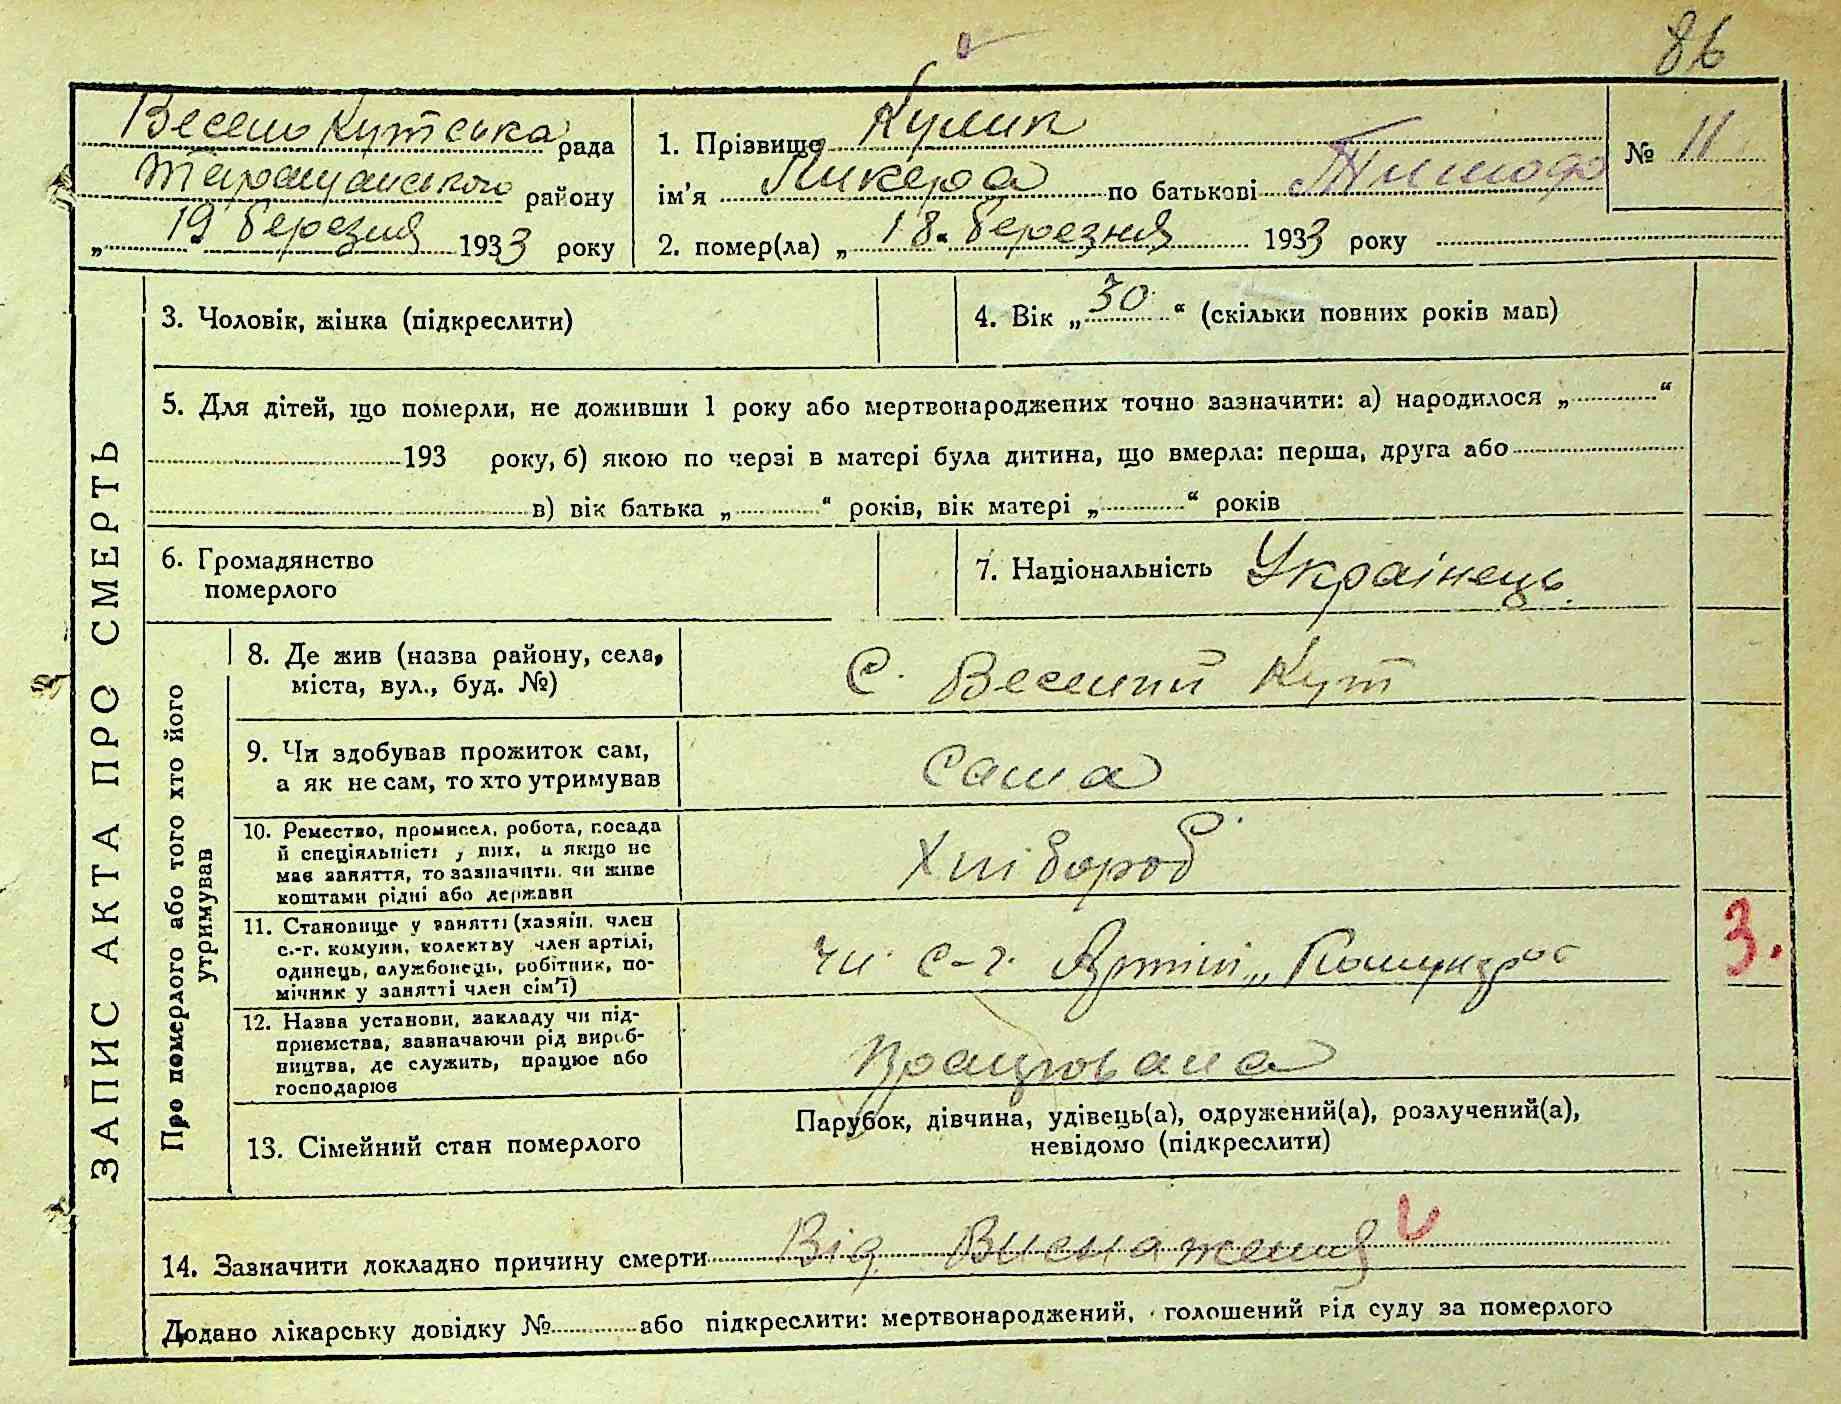 86
Весело Кутська рада
Таращанського району
„ 19 березня 1933 року
1. Прізвище Кулик
ім'я Ликера по батькові Тимоф
2. помер(ла) „ 18 „ березня 1933 року
№ 11
ЗАПИС АКТА ПРО СМЕРТЬ
3. Чоловік, жінка (підкреслити)
4. Вік „ 30 “ (скільки повних років мав)
5. Для дітей, що померли, не доживши 1 року або мертвонароджених точно зазначити: а) народилося „ “
193 року, б) якою по черзі в матері була дитина, що вмерла: перша, друга або
в) вік батька „ “ років, вік матері „ “ років
6. Громадянство
померлого
7. Національність Українець
Про померлого або того хто його
утримував
8. Де жив (назва району, села,
міста, вул., буд. №)
С. Веселий Кут
9. Чи здобував прожиток сам,
а як не сам, то хто утримував
Сама
10. Ремество, промисел, робота, посада
й спеціяльність у них, а якщо не
мав заняття, то зазначити, чи живе
коштами рідні або держави
Хлібороб
11. Становище у занятті (хазяїн, член
с.-г. комуни, колективу член артілі,
одинець, службовець, робітник, по-
мічник у занятті член сім'ї)
чл. с-г. Артілі „
3.
12. Назва установи, закладу чи під-
приємства, зазначаючи рід вироб-
ництва, де служить, працює або
господарює
Працювала
13. Сімейний стан померлого
Парубок, дівчина, удівець(а), одружений(а), розлучений(а),
невідомо (підкреслити)
14. Зазначити докладно причину смерти Від Виснаження
Додано лікарську довідку № або підкреслити: мертвонароджений, голошений від суду за померлого